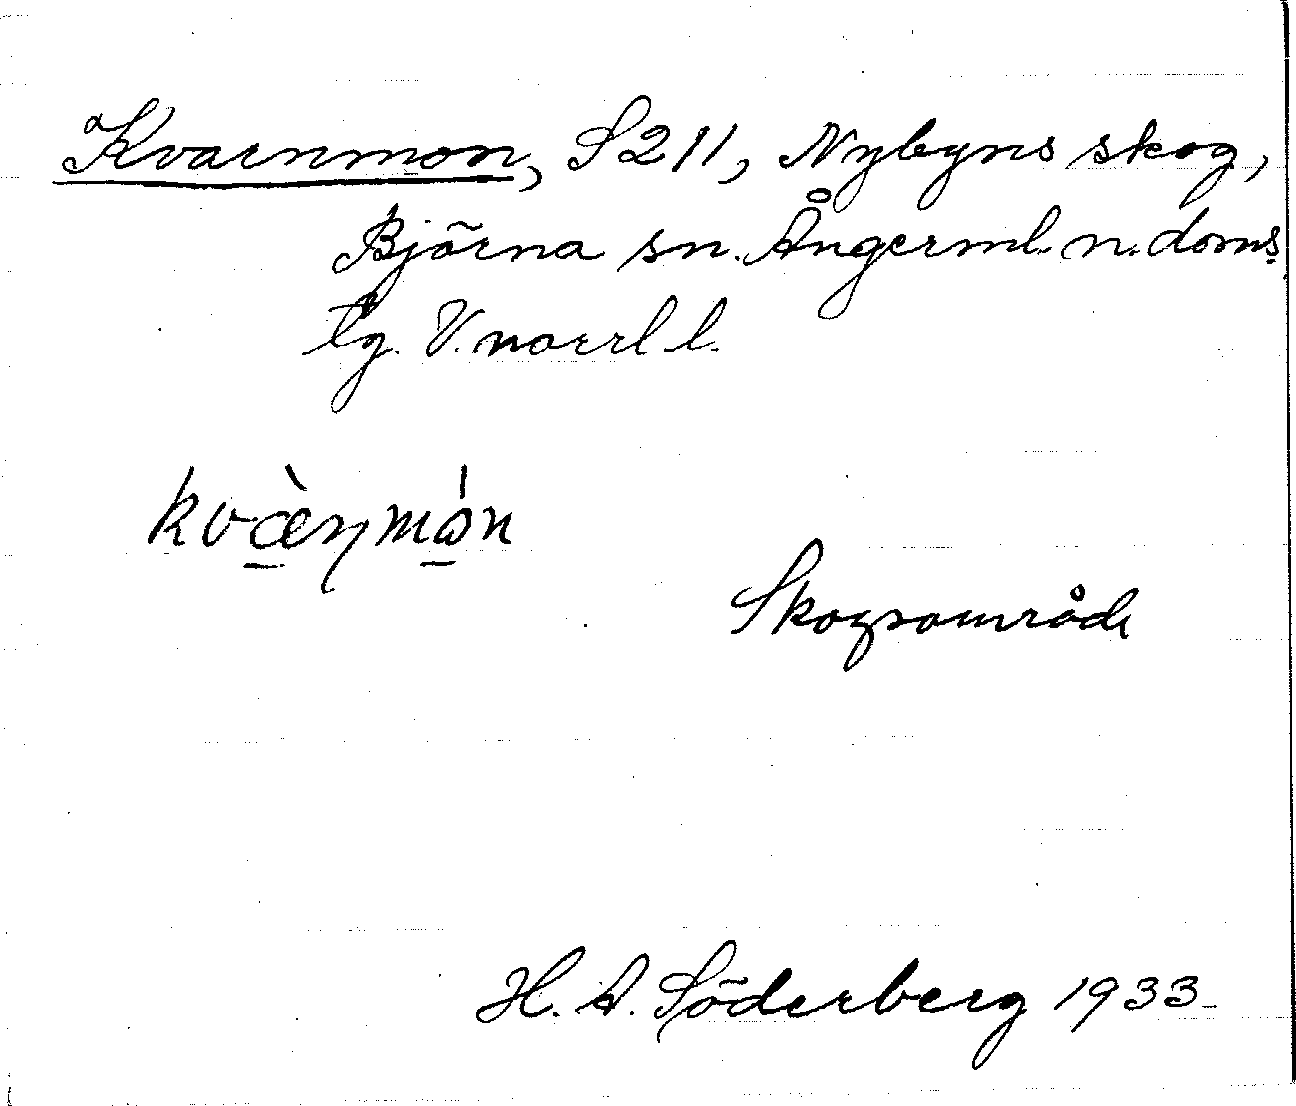 Kvarnmon, S211, Nybyns skog,
Björna sn. Ångerml. n. doms.
lg. V. norrl l.
kvæ̀ṇmó̱n
Skogsområde
H. A. Söderberg 1933